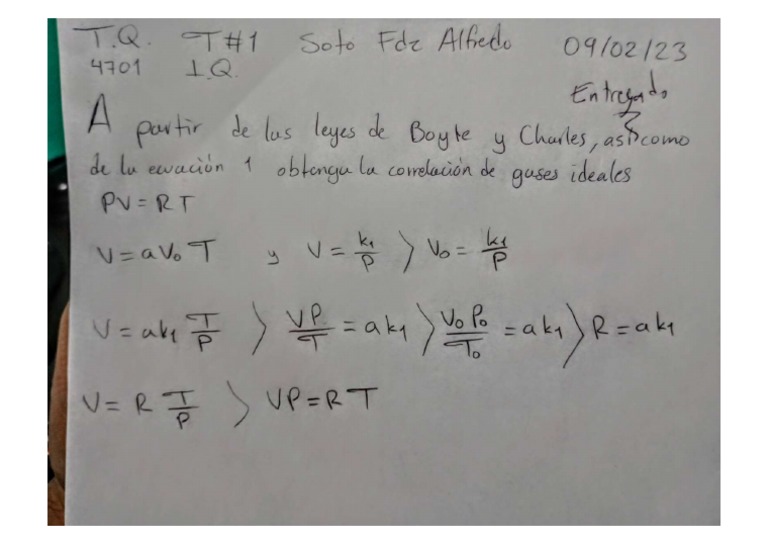 T.Q. T#1 Soto Fdz Alfredo 09/02/23
4701 I.Q.
Entregado
A partir de las leyes de Boyle y Charles, así como
de la ecuación 1 obtenga la correlación de gases ideales
PV = RT
V = aV₀T y V = k₁/P > V₀ = k₁/P
V = ak₁ T/P > VP/T = ak₁ > V₀P₀/T₀ = ak₁ > R = ak₁
V = R T/P > VP = RT